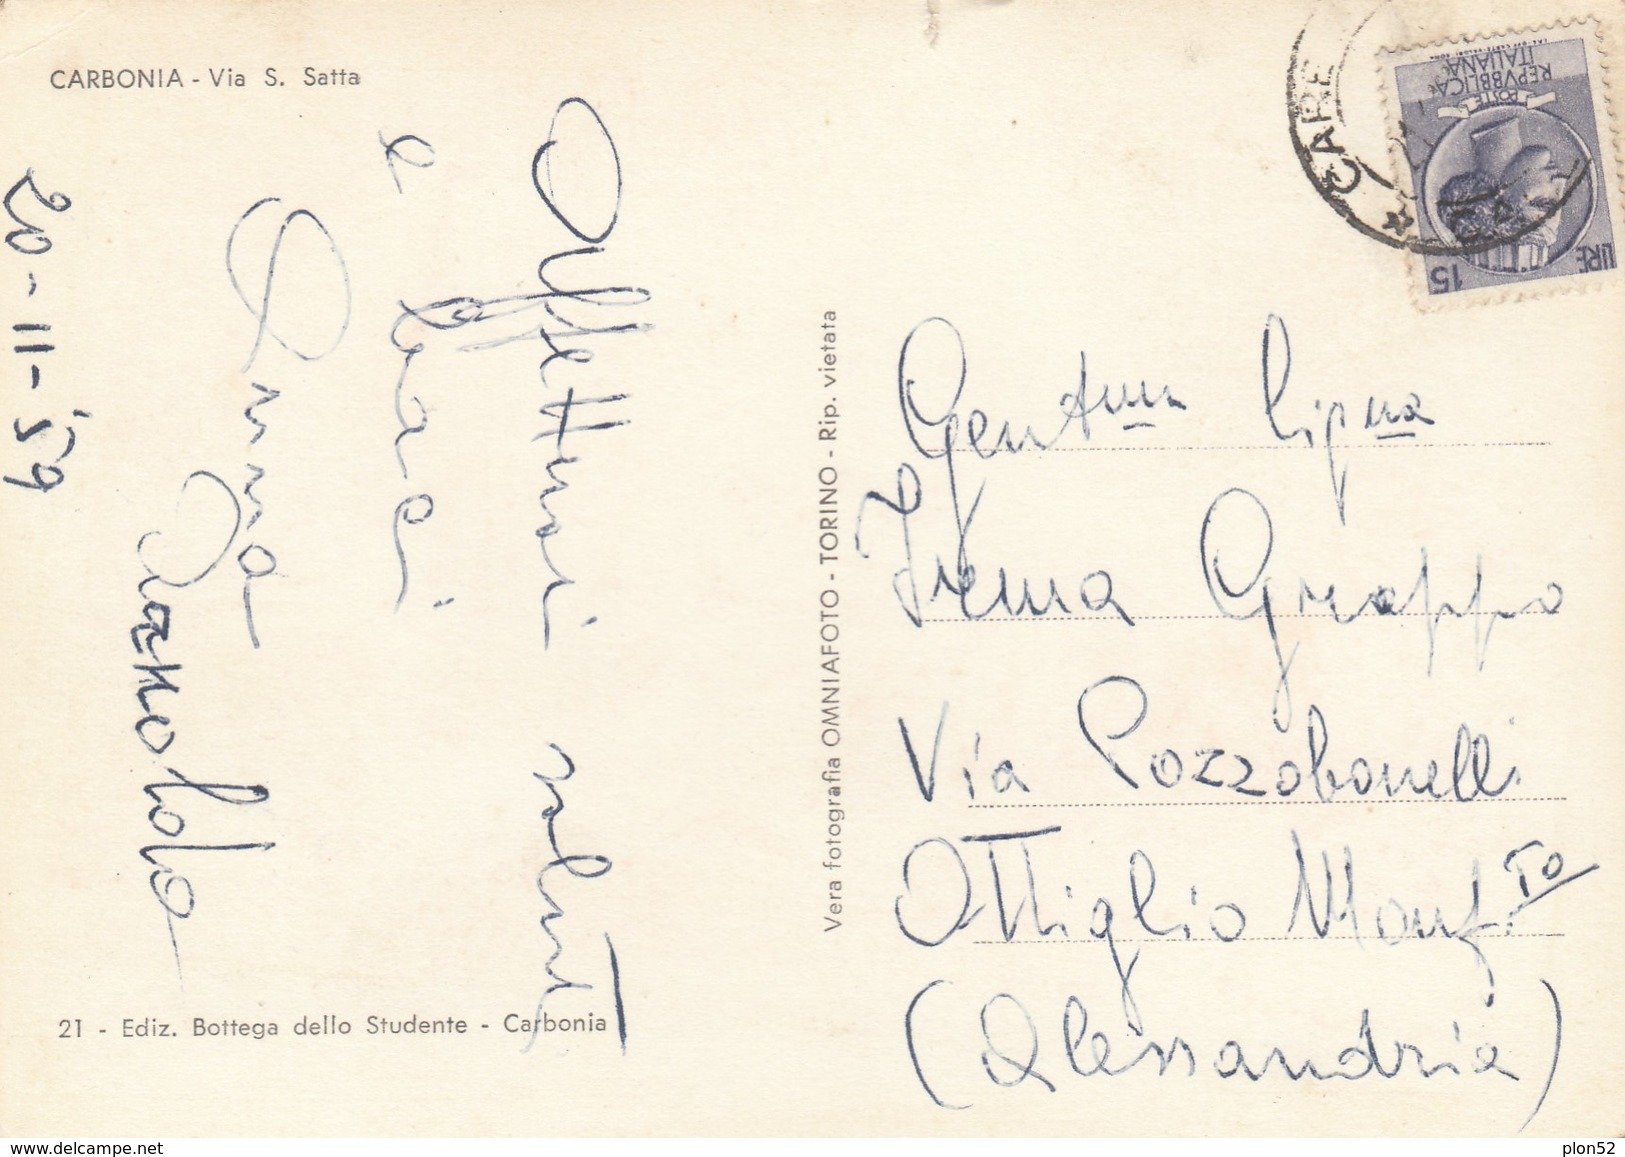 CARBONIA - Via S. Satta
20-11-'59
Affettuosi saluti
e baci
Anna
21 - Ediz. Bottega dello Studente - Carbonia
Vera fotografia OMNIAFOTO - TORINO - Rip. vietata
CARB
POSTE
REPVBBLICA
ITALIANA
LIRE 15
Gent.ma Sig.na
Irma Greappo
Via Pozzobonelli
Ottiglio Monf.TO
(Alessandria)
plon52